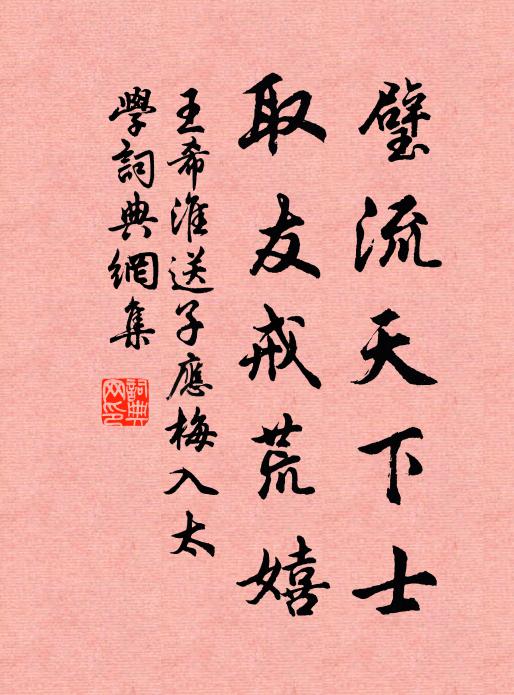 璧流天下士
取友戒荒嬉
王希淮送子應梅入太
學詞典網集
詞典
网印